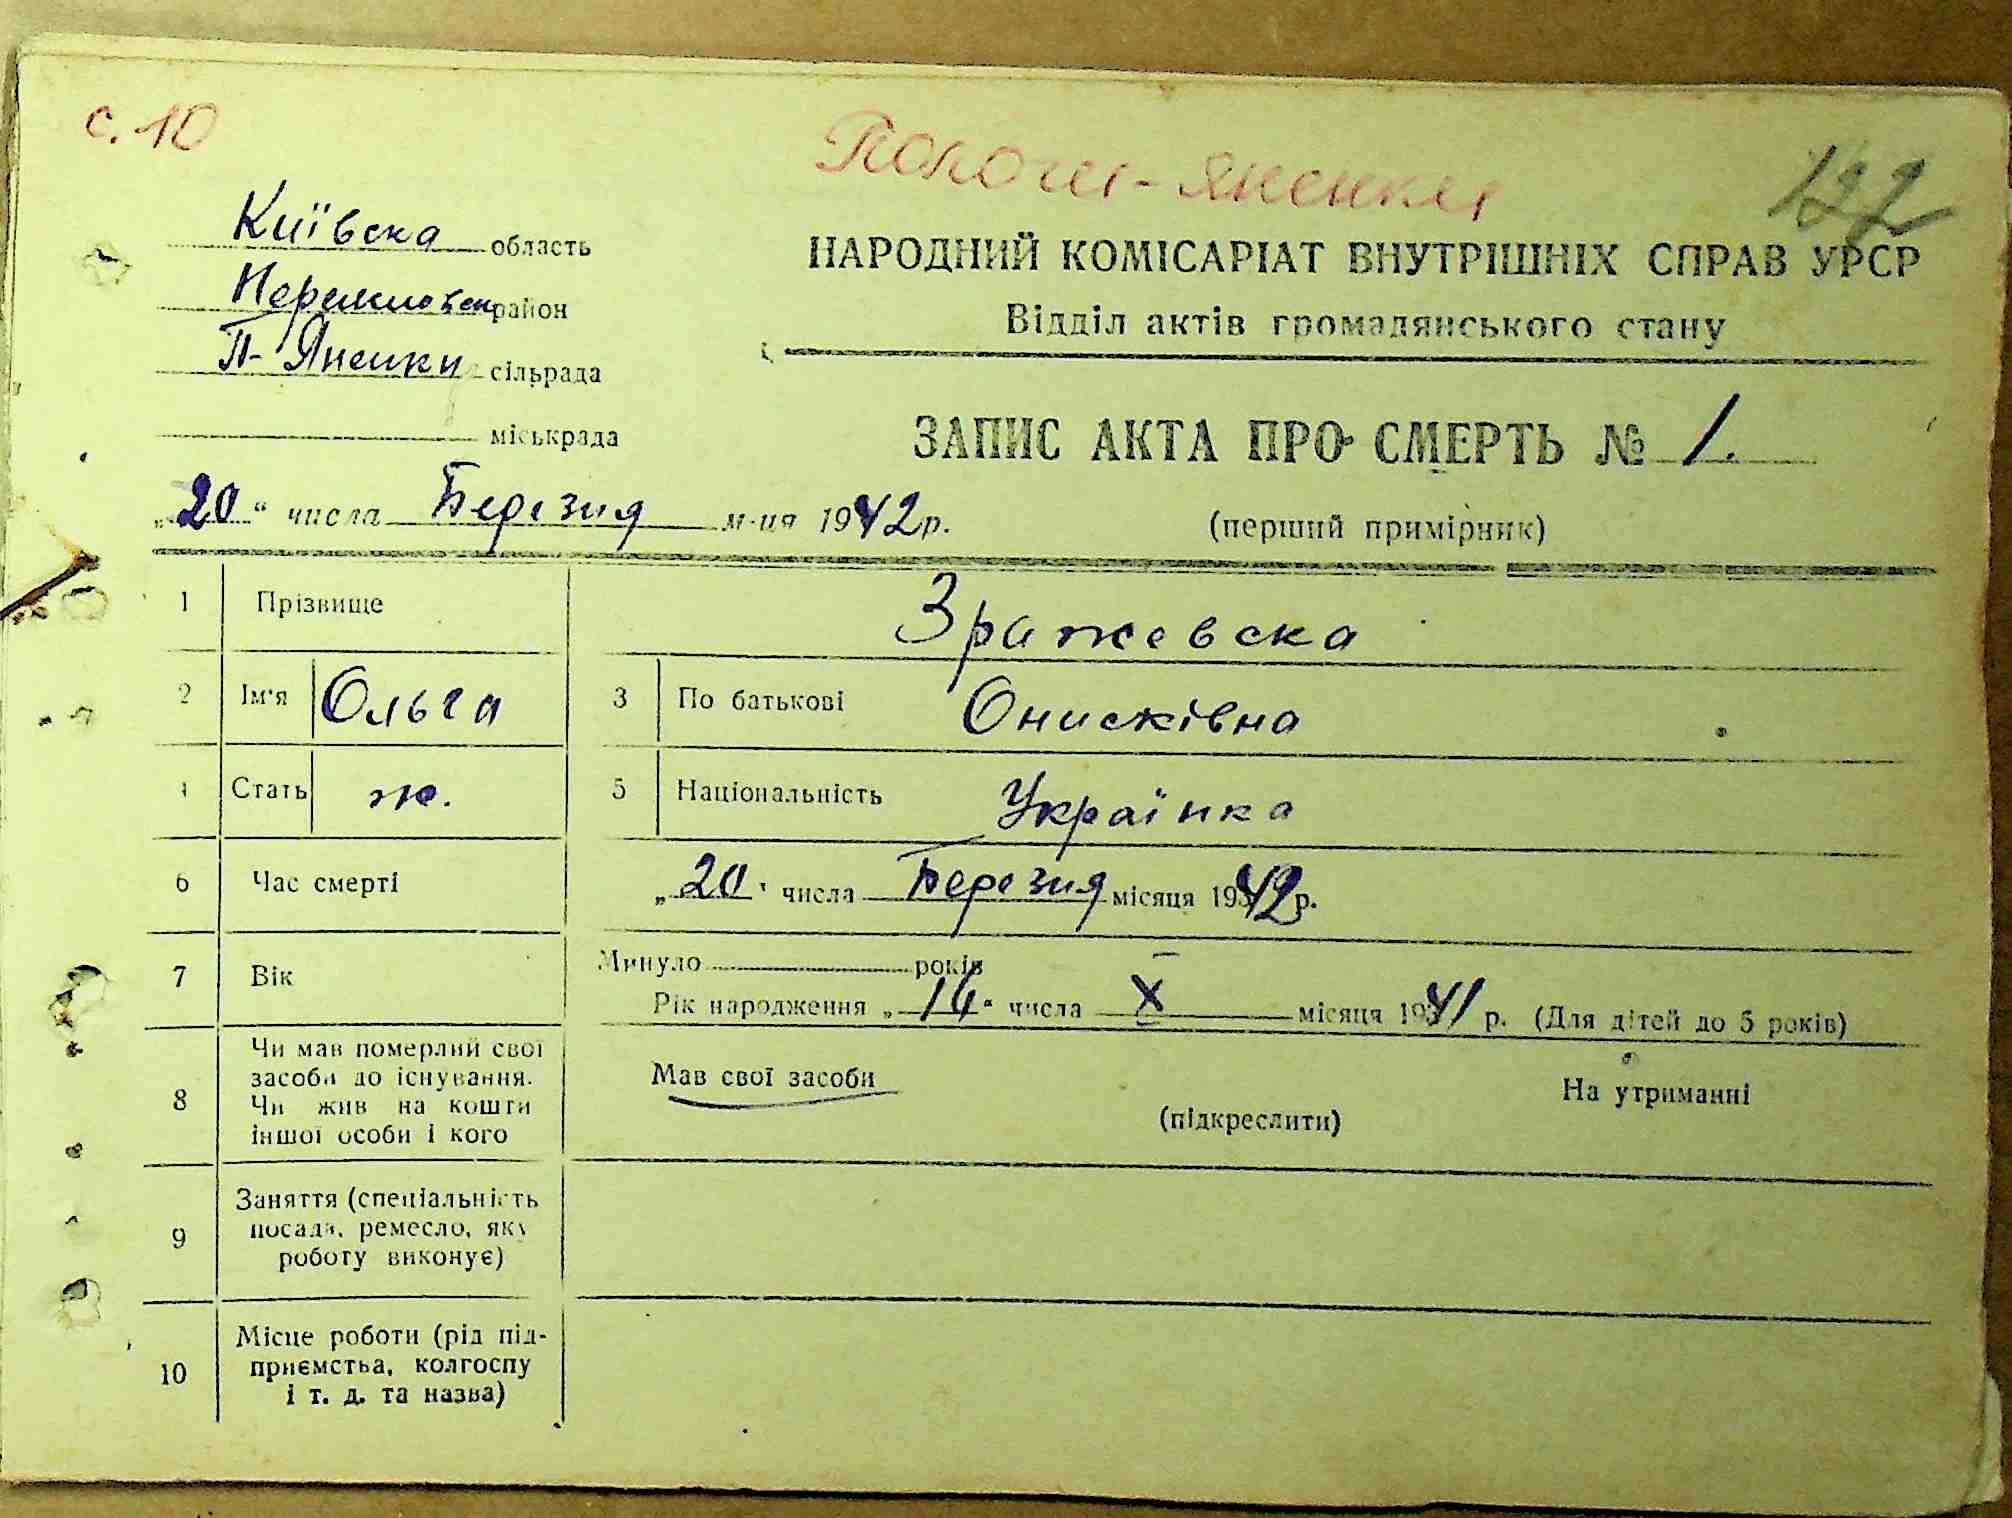 с. 10
Пологи-Яненки
122
Київска область
район
П-Яненки сільрада
міськрада
НАРОДНИЙ КОМІСАРІАТ ВНУТРІШНІХ СПРАВ УРСР
Відділ актів громадянського стану
ЗАПИС АКТА ПРО СМЕРТЬ № 1.
(перший примірник)
„20“ числа Березня м-ця 1942 р.
1 Прізвище Зражевска
2 Ім'я Ольга 3 По батькові Онисківна
4 Стать ж. 5 Національність Українка
6 Час смерті „20“ числа Березня місяця 1942 р.
7 Вік Минуло років
Рік народження „14“ числа X місяця 1941 р. (Для дітей до 5 років)
8 Чи мав померлий свої
засоби до існування.
Чи жив на кошти
іншої особи і кого
Мав свої засоби На утриманні
(підкреслити)
9 Заняття (спеціальність
посада, ремесло, яку
роботу виконує)
10 Місце роботи (рід під-
приємства, колгоспу
і т. д. та назва)